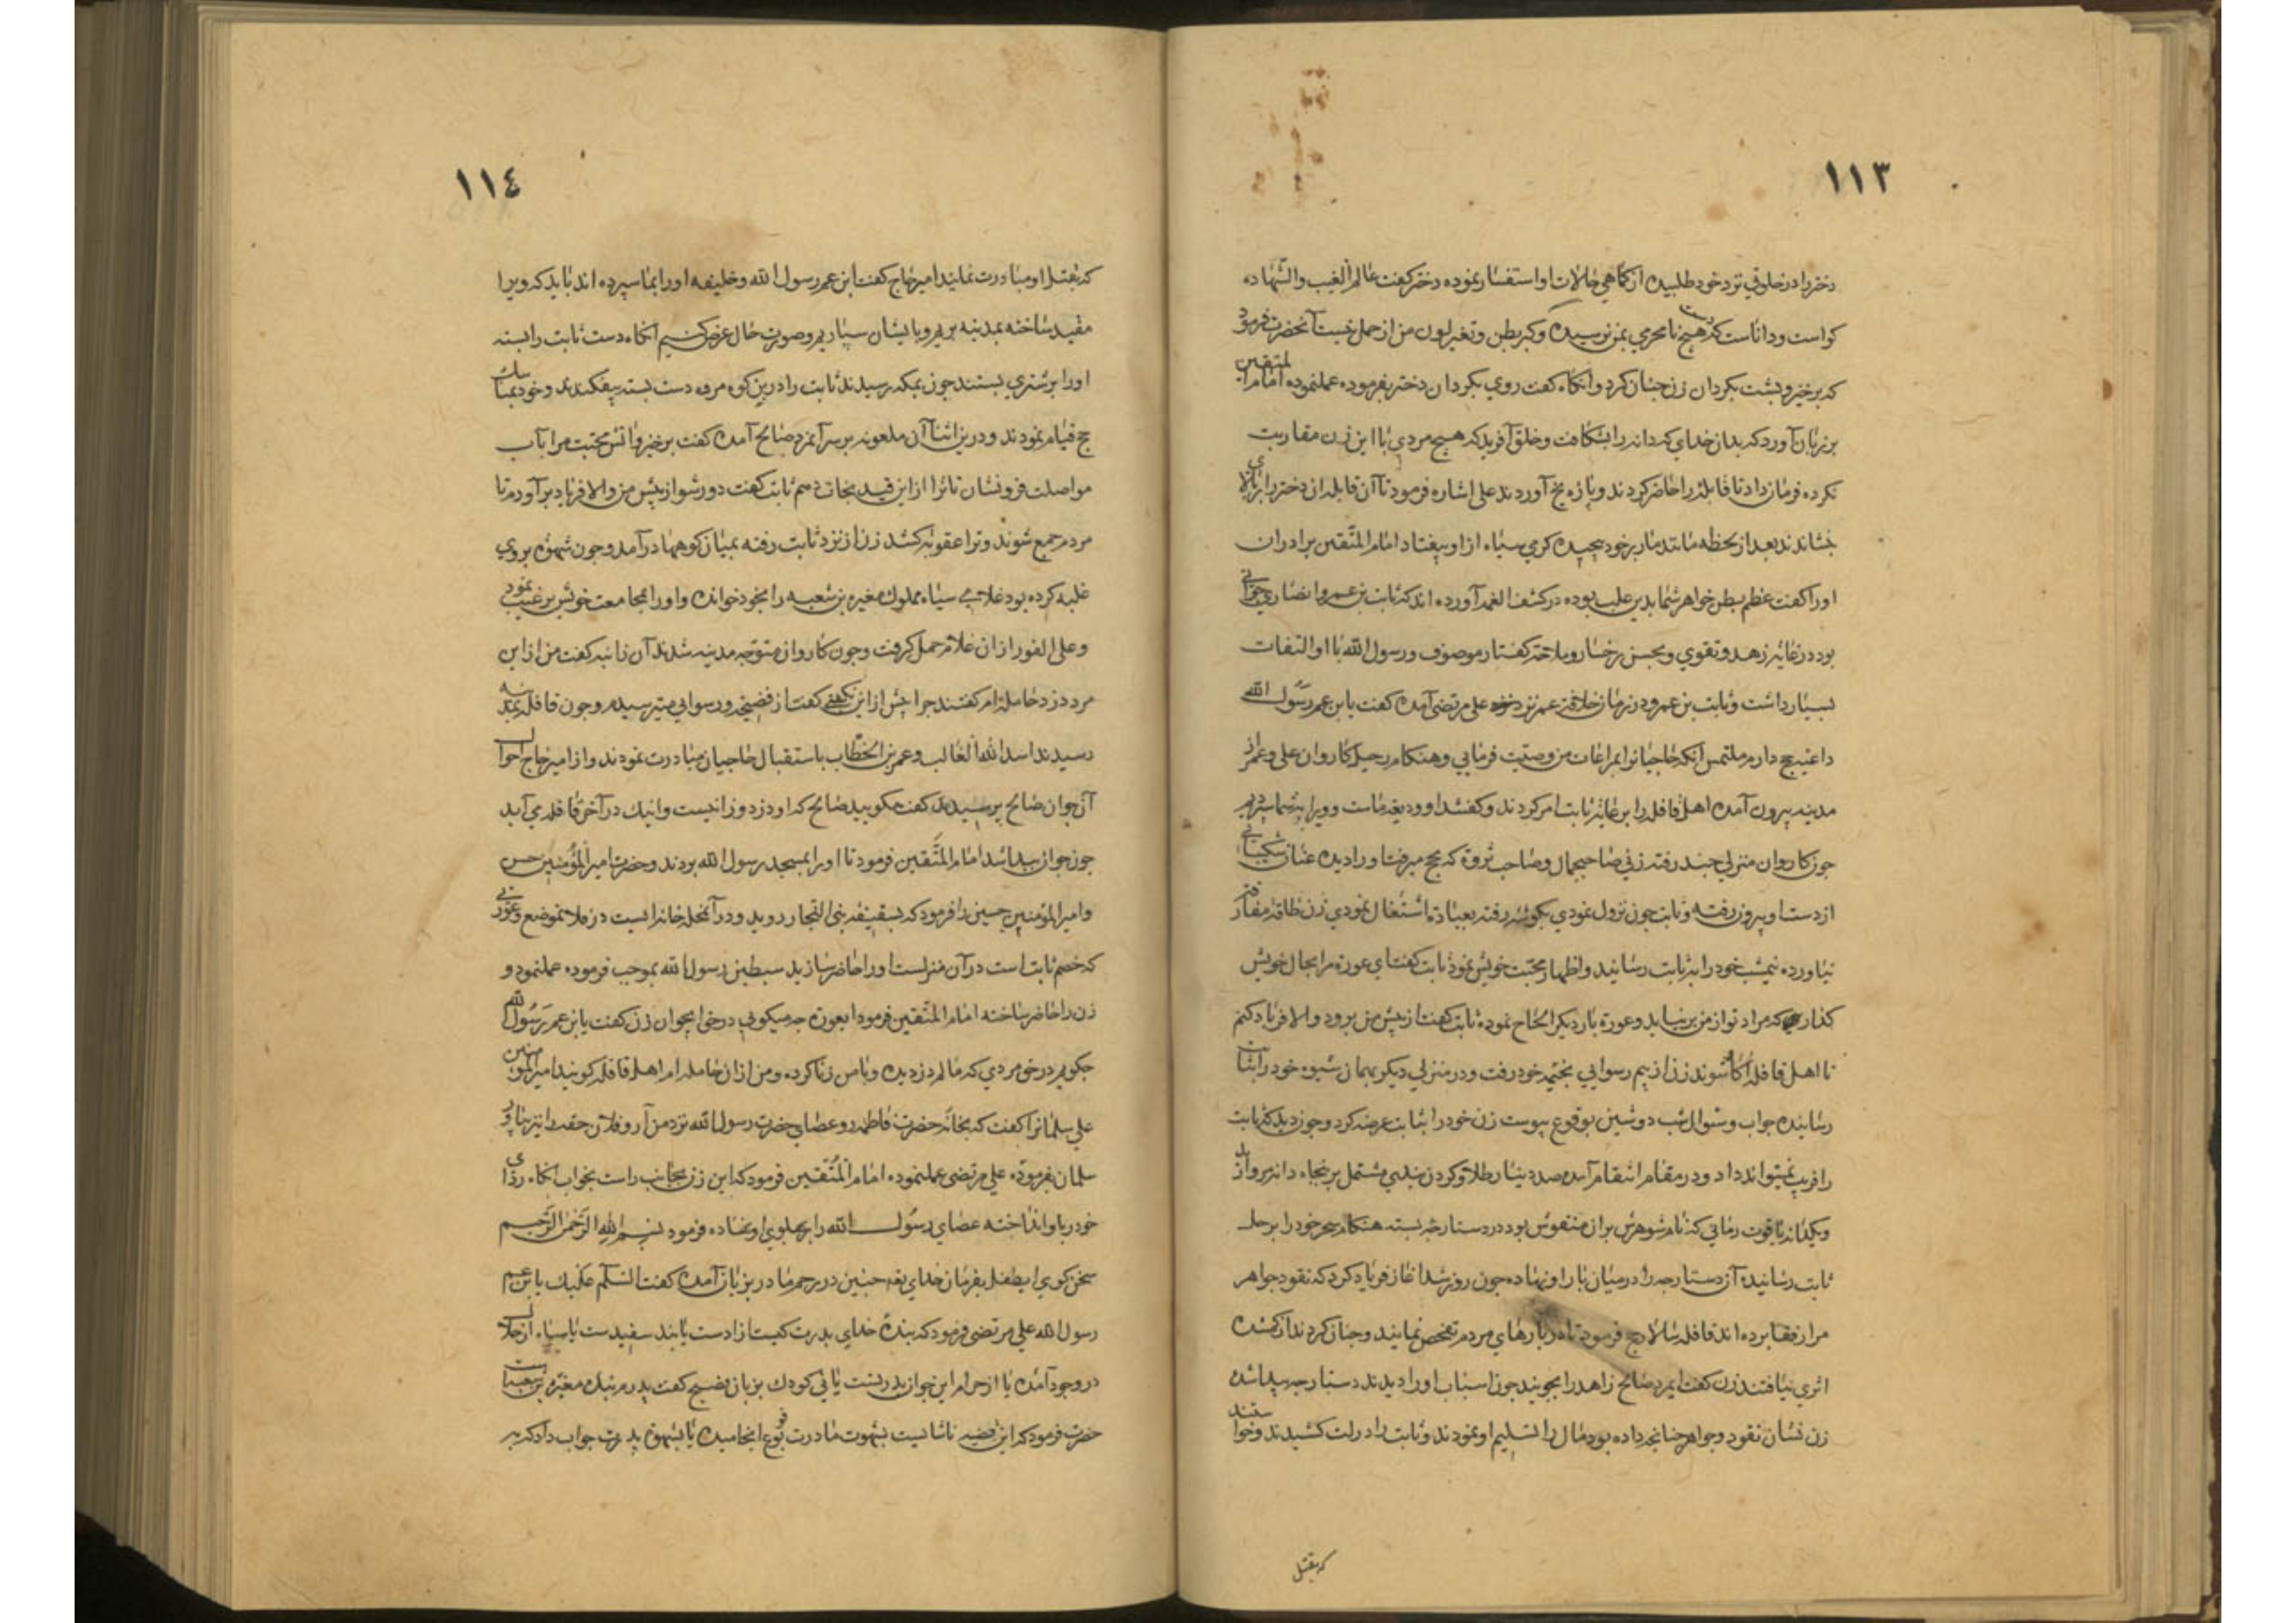 ١١٣
دختررا در خلوتی نزد خود طلبیده از کماهی حالات او استفسار نموده دختر کفت عالم الغیب والشهاده
کواست و داناست که دست هیچ نامحرمی بمن نرسیده و کبر بطن و تغیر لون من از حمل نیست آنحضرت فرمود
که برخیز و پشت بکردان زن چنان کرد و آنکاه کفت روی بکردان دختر بفرموده عملنموده امام المتقین
بر زبان آورد که بدان خدای که دانه را بشکافت و خلق آفرید که هیچ مردی با این زن مقاربت
نکرده فرمان داد تا قابله را حاضر کردند و پاره یخ آوردند علی اشاره فرمود تا آن قابله ان دختر را بر بالای
نشاندند بعد از لحظه مانند مار برخود پیچیده کرمی سیاه از او بیفتاد امام المتقین برادران
او را کفت عظم بطن خواهر شما بدین علت بوده در کشف الغمه آورده اند که ثابت بن عمرو انصاری جوانی
بود در غایة زهد و تقوی و بحسن رخسار و ملاحة کفتار موصوف و رسول الله با او التفات
بسیار داشت و ثابت بن عمرو در زمان خلافة عمر نزد علی مرتضی آمده کفت یا بن عم رسول الله
داعیه حج دارم ملتمس آنکه حاجیانرا بمراعات من وصیت فرمایی و هنکام رحیل کاروان علی و عمر از
مدینه بیرون آمده اهل قافله را بر عایة ثابت امر کردند و کفتند او ودیعه ماست و ویرا بشما سپردیم
چون کاروان منزلی چند رفتند زنی صاحبجمال و صاحب ثروة که بحج میرفت او را دیده عنان شکیبائی
از دست او بیرون رفته و ثابت چون نزول نمودی بکوشه رفته بعبادة اشتغال نمودی زن طاقة مفارقت
نیاورده نیمشب خود را بر ثابت رسانید و اظهار محبت خویش نمود ثابت کفت ای عورة مرا بحال خویش
کذار که مراد تو از من بر نیاید و عورة بار دیکر الحاح نموده ثابت کفت از پیش من برو والا فریاد کنم
تا اهل قافله آکاه شوند زن از بیم رسوایی بخیمه خود رفت و در منزلی دیکر بهمان شیوه خود را بثابت
رسانیده جواب و سؤال شب دوشین بوقوع پیوست زن خود را بثابت عرضه کرد و چون دید که ثابت
را فریب نمیتواند داد و در مقام انتقام آمده صد دینار طلا و کردن بندی مشتمل بر پنجاه دانه مروارید
و یکدانه یاقوت رمانی که نام شوهرش بران منقوش بود در دستارچه بسته هنکام سحر خود را بر حل
ثابت رسانیده آن دستارچه را در میان بار او نهاده چون روز شد آغاز فریاد کرد که نقود و جواهر
مرا زفقا برده اند قافله سالار حج فرمود تا در بارهای مردم تفحص نمایند و چنان کردند از کمشده
اثری نیافتند زن کفت ایمرد صالح زاهد را بجویند چون اسباب او را دیدند دستارچه پیدا شده
زن نشان نقود و جواهر چنانچه داده بود مال را تسلیم او نمودند و ثابت را در لت کشیدند و خواستند
که بقتل
١١٤
که بقتل او مبادرت نمایند امیر حاج کفت ابن عم رسول الله و خلیفه او را بما سپرده اند باید که ویرا
مقید ساخته بمدینه بریم و بایشان سپاریم و صورت حال عرض کنیم انکاه دست ثابت را بسته
او را بر شتری بستند چون بمکه رسیدند ثابت را در بن کوه مروه دست بسته بیفکندند و خود بمناسک
حج قیام نمودند و درین اثنا آن ملعونه بر سر آنمرد صالح آمده کفت برخیز و آتش محبت مرا بآب
مواصلت فرونشان تا ترا از این قید نجات دهم ثابت کفت دور شو از پیش من والا فریاد برآورم تا
مردم جمع شوند و ترا عقوبة کنند زن از نزد ثابت رفته بمیان کوهها درآمد و چون شهوة بروی
غلبه کرده بود غلامی سیاه مملوک مغیره بن شعبه را بخود خوانده و او را بمجامعت خویش ترغیب نمود
و علی الفور از ان غلام حمل کرفت و چون کاروان متوجه مدینه شدند آن زانیه کفت من از این
مرد دزد حامله ام کفتند چرا پیش از این نکفتی کفت از فضیحة و رسوایی میترسیدم و چون قافله بمدینه
رسیدند اسد الله الغالب و عمر بن الخطاب باستقبال حاجیان مبادرت نمودند و از امیر حاج احوال
آن جوان صالح پرسیدند کفت مکویید صالح که او دزد و زانیست و اینک در آخر قافله می آید
چون جوان پیدا شد امام المتقین فرمود تا او را بمسجد رسول الله بردند و حضرت امیر المؤمنین حسن
و امیر المؤمنین حسین را فرمود که بسقیفه بنی النجار روید و در آنمحله خانه ایست در فلان موضع و عورتی
که خصم ثابت است در آن منزلست او را حاضر سازید سبطین رسول الله بموجب فرموده عملنمود و
زن را حاضر ساخته امام المتقین فرمود ایعورة چه میکویی در حق اینجوان زن کفت یا بن عم رسول الله
چکویم در حق مردی که مالم دزدیده و با من زنا کرده و من از ان حامله ام اهل قافله کویند امیر المؤمنین
علی سلمانرا کفت که بخانه حضرت فاطمه رو عصای حضرت رسول الله نزد من آر و فلان حقه را نیز بیاور
سلمان بفرموده علی مرتضی عملنموده امام المتقین فرمود که این زن بجانب راست بخوابانکاه ردای
خود را باو انداخته عصای رسول الله را بپهلوی او نهاده فرمود بسم الله الرحمن الرحیم
سخن کوی ایطفل بفرمان خدای تعه جنین در رحم مادر بزبان آمده کفت السلام علیک یا بن عم
رسول الله علی مرتضی فرمود که بنده خدای پدرت کیست ازادست یا بنده سفیدست یا سیاه از حلال
در وجود آمده یا از حرام این جوان پدر تست یا نی کودک بزبان فصیح کفت پدرم بنده مغیره بن شعبه است
حضرت فرمود که این قضیه ناشایست بشهوت مادرت بوقوع انجامیده یا بشهوة پدرت جواب داد که بر